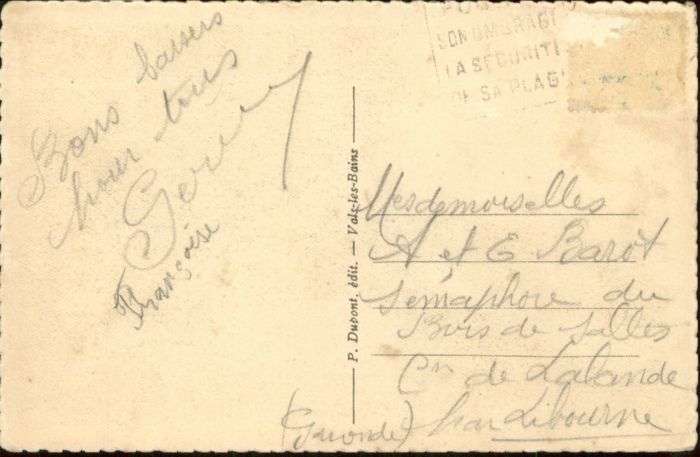 Bons baisers
pour tous
Françoise
SON OMBRAGE
LA SECURITE
DE SA PLAGE
P. Dupont, édit. — Vals-les-Bains
Mesdemoiselles
A et E Barot
Sémaphore du
Bois de Salles
Cne de Lalande
par Libourne
(Gironde)